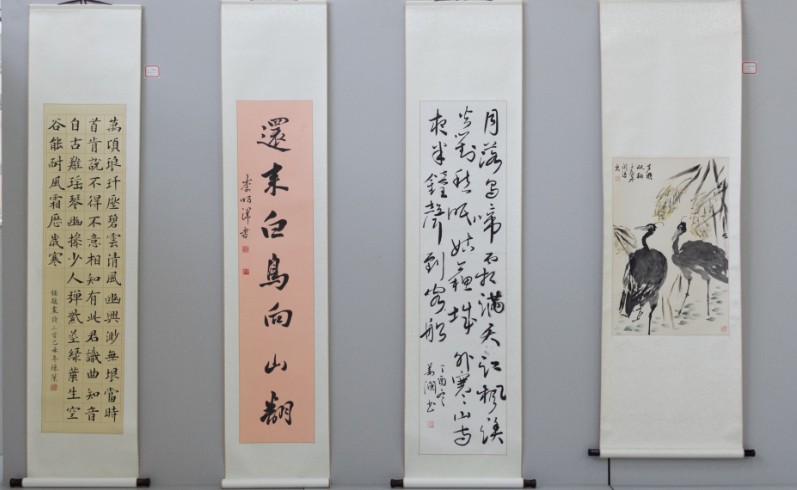 萬頃琅玕壓碧雲清風幽興渺無垠當時
首肯說不得不意相知有此君識曲知音
自古難瑤琴幽操少人彈紫莖綠葉生空
谷能耐風霜歷歲寒
還来白鳥向山翻
月落烏啼霜滿天江楓漁
火對愁眠姑蘇城外寒山寺
夜半鐘聲到客船
丁酉冬